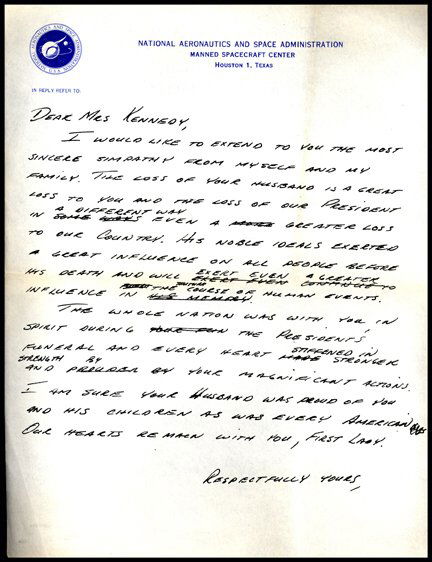 NATIONAL AERONAUTICS AND SPACE ADMINISTRATION
MANNED SPACECRAFT CENTER
HOUSTON 1, TEXAS
IN REPLY REFER TO:
DEAR MRS KENNEDY,
I WOULD LIKE TO EXTEND TO YOU THE MOST
SINCERE SIMPATHY FROM MYSELF AND MY
FAMILY. THE LOSS OF YOUR HUSBAND IS A GREAT
LOSS TO YOU AND THE LOSS OF OUR PRESIDENT
A DIFFERENT WAY
IN SOME WAYS EVEN A GREATER LOSS
TO OUR COUNTRY. HIS NOBLE IDEALS EXERTED
A GREAT INFLUENCE ON ALL PEOPLE BEFORE
EXERT EVEN A GREATER
HIS DEATH AND WILL EXERT EVEN CONTINUE TO
INFLUENCE IN HIS MEMORY THE COURSE OF HUMAN EVENTS.
THE WHOLE NATION WAS WITH YOU IN
SPIRIT DURING THE PRESIDENT'S
FUNERAL AND EVERY HEART STIFFENED IN
STRENGTH BY MADE STRONGER
AND PROUDER BY YOUR MAGNIFICANT ACTIONS.
I AM SURE YOUR HUSBAND WAS PROUD OF YOU
AND HIS CHILDREN AS WAS EVERY AMERICAN
OUR HEARTS REMAIN WITH YOU, FIRST LADY.
RESPECTFULLY YOURS,